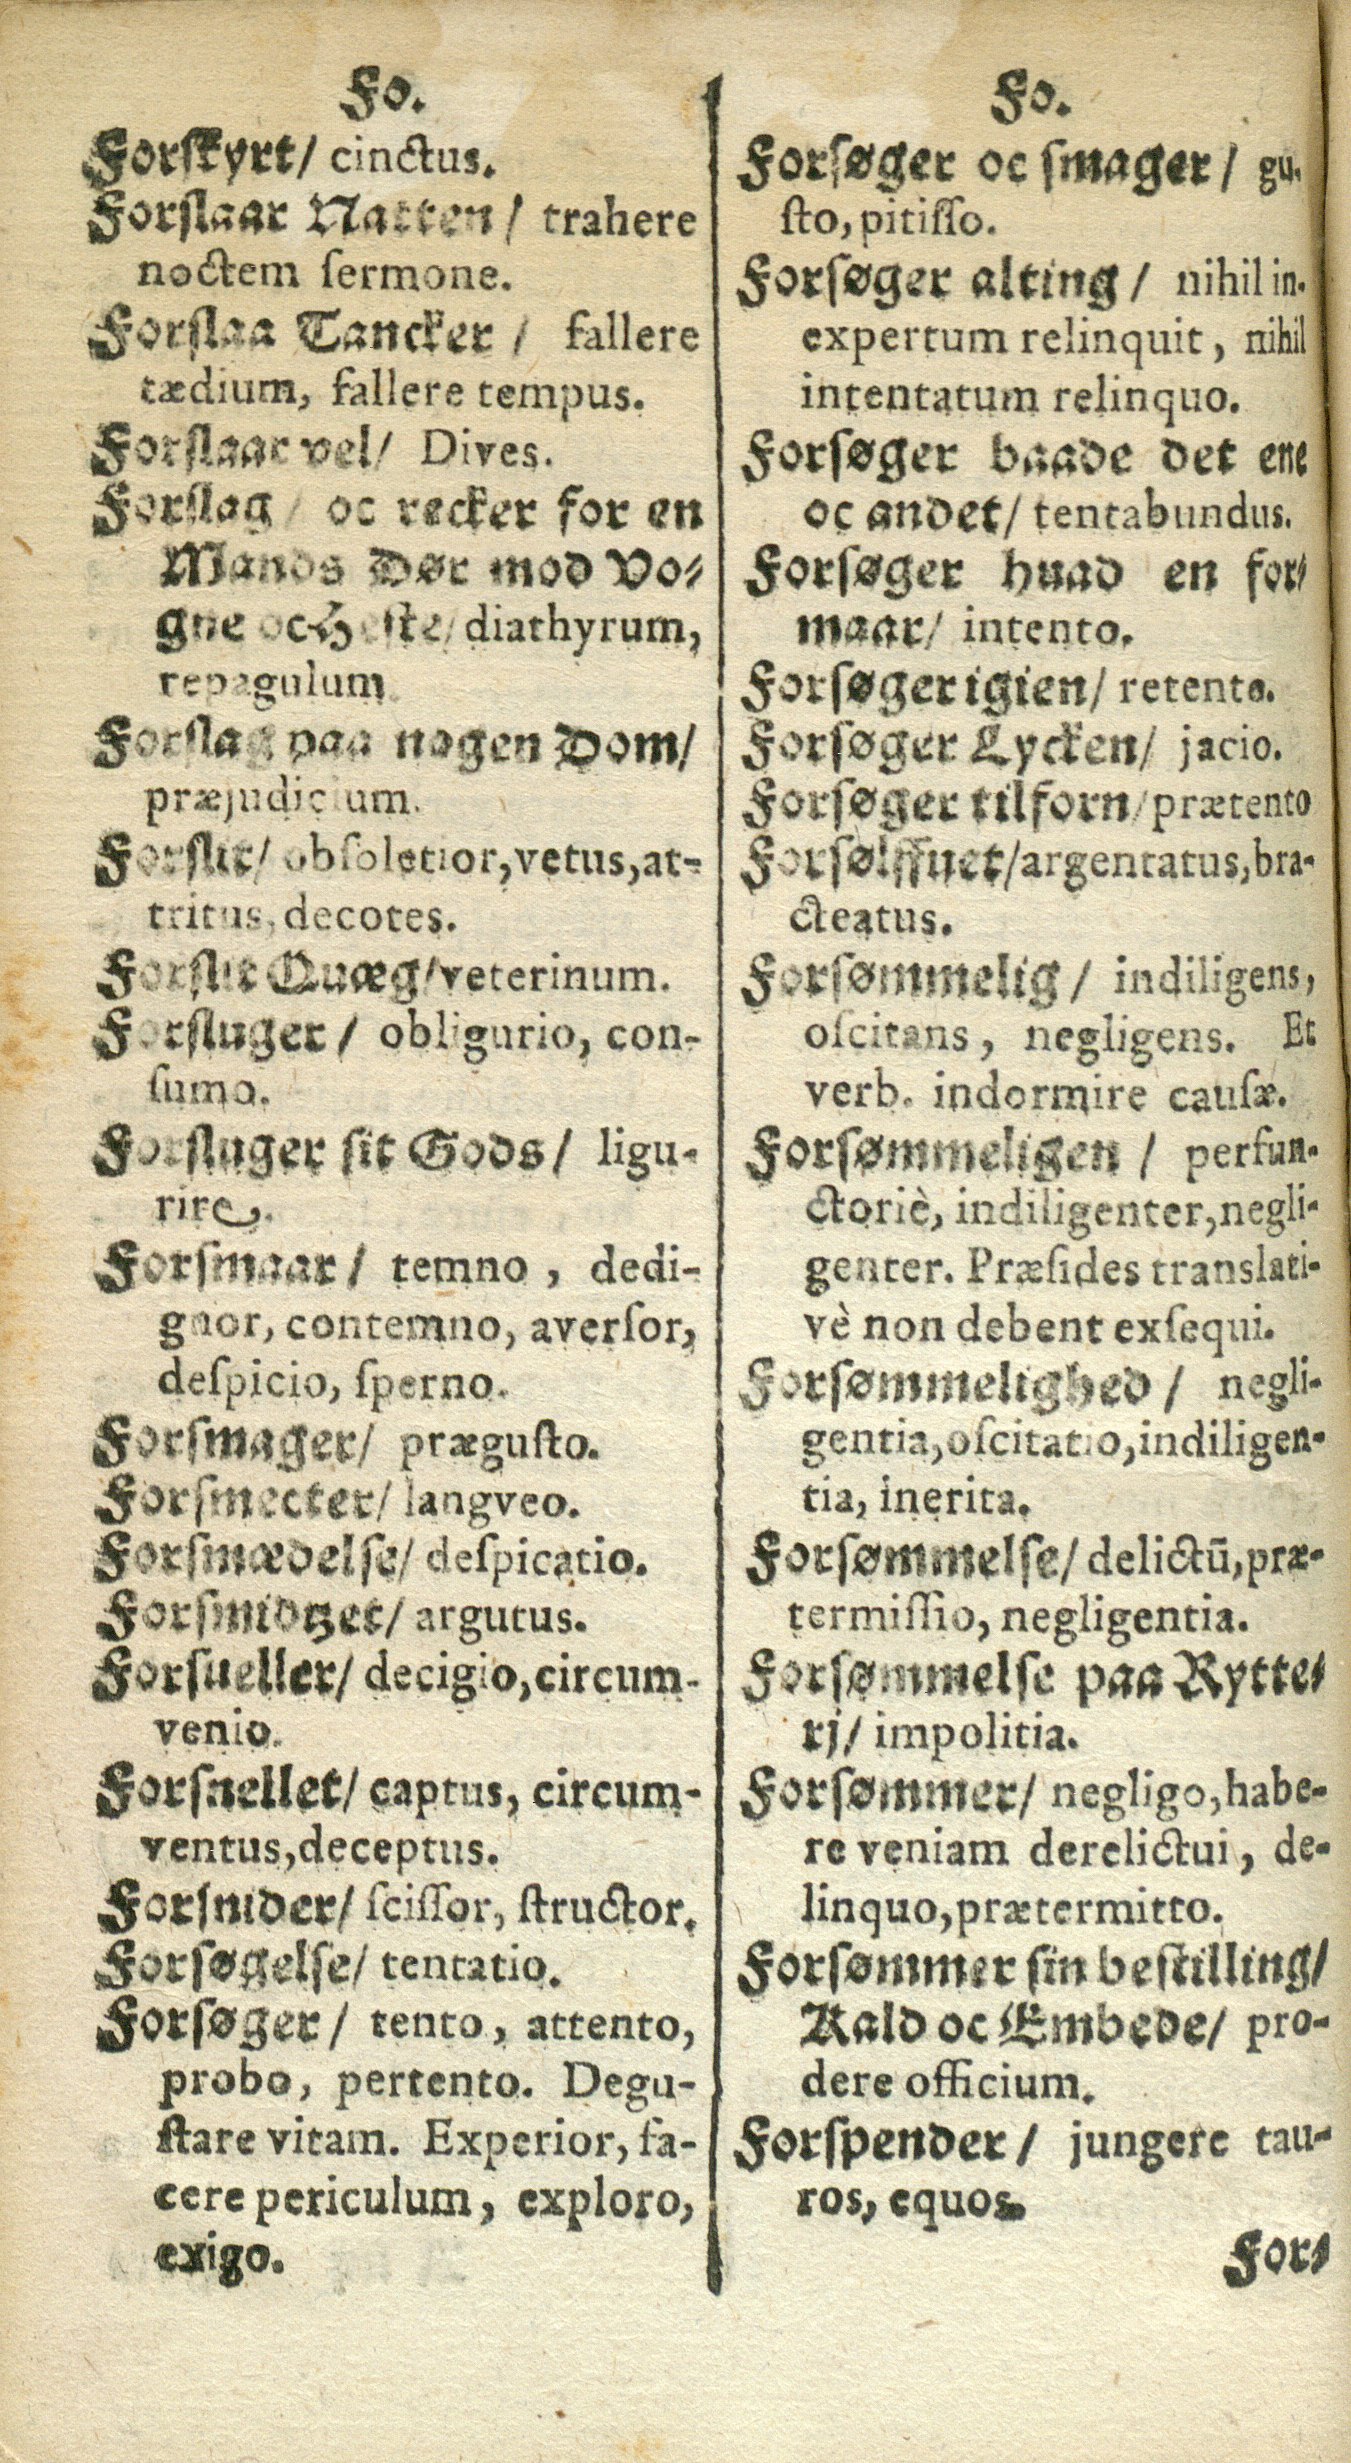 Fo.
Forſkyrt/ cinctus.
Forſlaar Natten/ trahere
noctem ſermone.
Forſlaa Tancker / fallere
tædium, fallere tempus.
Forſlaar vel/ Dives.
Forſlag / oc recker for en
Mands Dør mod Vo⸗
gne oc Heſte/ diathyrum,
repagulum
Forſlag paa nogen Dom/
præjudicium.
Forſlit/ obſoletior, vetus, at-
tritus, decotes.
Forſlit Quæg/ veterinum.
Forſluger / obligurio, con-
ſumo.
Forſluger ſit Gods/ ligu-
rire.
Forſmaar / temno, dedi-
gnor, contemno, averſor,
deſpicio, ſperno.
Forſmager/ præguſto.
Forſmecter/ langveo.
Forſmædelſe/ deſpicatio.
Forſmidtzet/ argutus.
Forſueller/ decigio, circum-
venio.
Forſnellet/ captus, circum-
ventus, deceptus.
Forſnider/ ſciſſor, ſtructor.
Forſøgelſe/ tentatio.
Forſøger/ tento, attento,
probo, pertento. Degu-
ſtare vitam. Experior, fa-
cere periculum, exploro,
exigo.
Fo.
Forſøger oc ſmager / gu-
ſto, pitiſſo.
Forſøger alting / nihil in-
expertum relinquit, nihil
intentatum relinquo.
Forſøger baade det ene
oc andet/ tentabundus.
Forſøger huad en for⸗
maar/ intento.
Forſøger igien/ retento.
Forſøger Lycken/ jacio.
Forſøger tilforn/ prætento
Forſølffuet/ argentatus, bra-
cteatus.
Forſømmelig / indiligens,
oſcitans, negligens. Et
verb. indormire cauſæ.
Forſømmeligen / perfun-
ctoriè, indiligenter, negli-
genter. Præſides translati-
vè non debent exſequi.
Forſømmelighed / negli-
gentia, oſcitatio, indiligen-
tia, inerita.
Forſømmelſe/ delictū, præ-
termiſſio, negligentia.
Forſømmelſe paa Rytte⸗
rj/ impolitia.
Forſømmer/ negligo, habe-
re veniam derelictui, de-
linquo, prætermitto.
Forſømmer ſin beſtilling/
Kald oc Embede/ pro-
dere officium.
Forſpender / jungere tau-
ros, equos.
For⸗